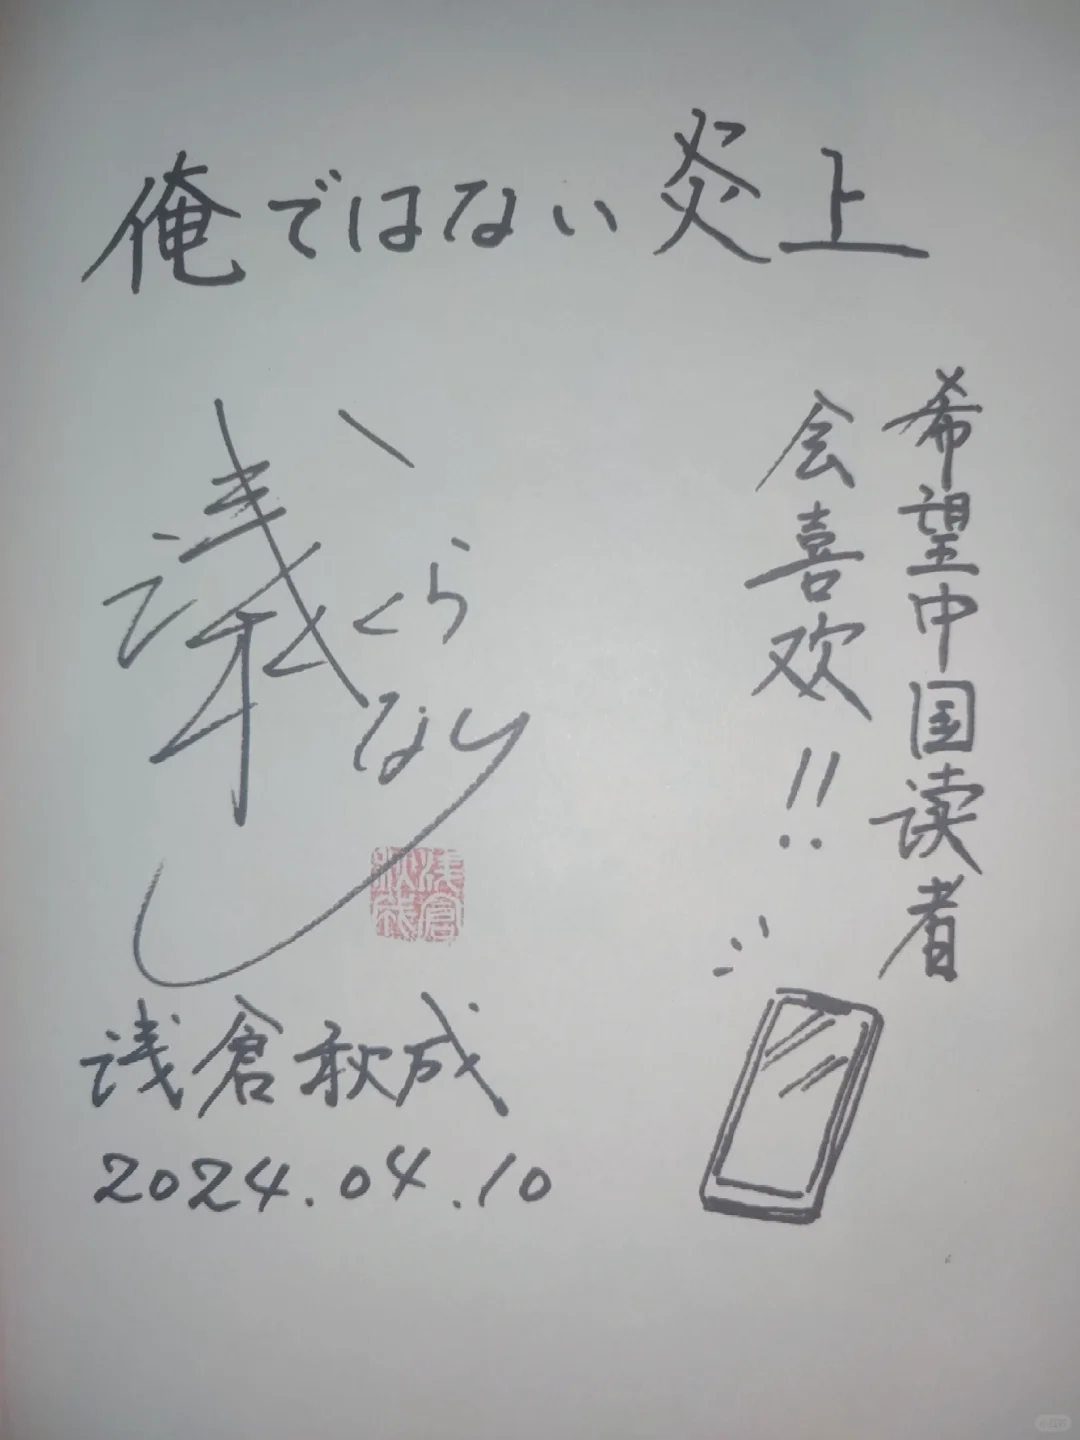 俺ではない炎上
希望中国读者
会喜欢!!
浅くら
なり
浅倉秋成
浅倉秋成
2024.04.10